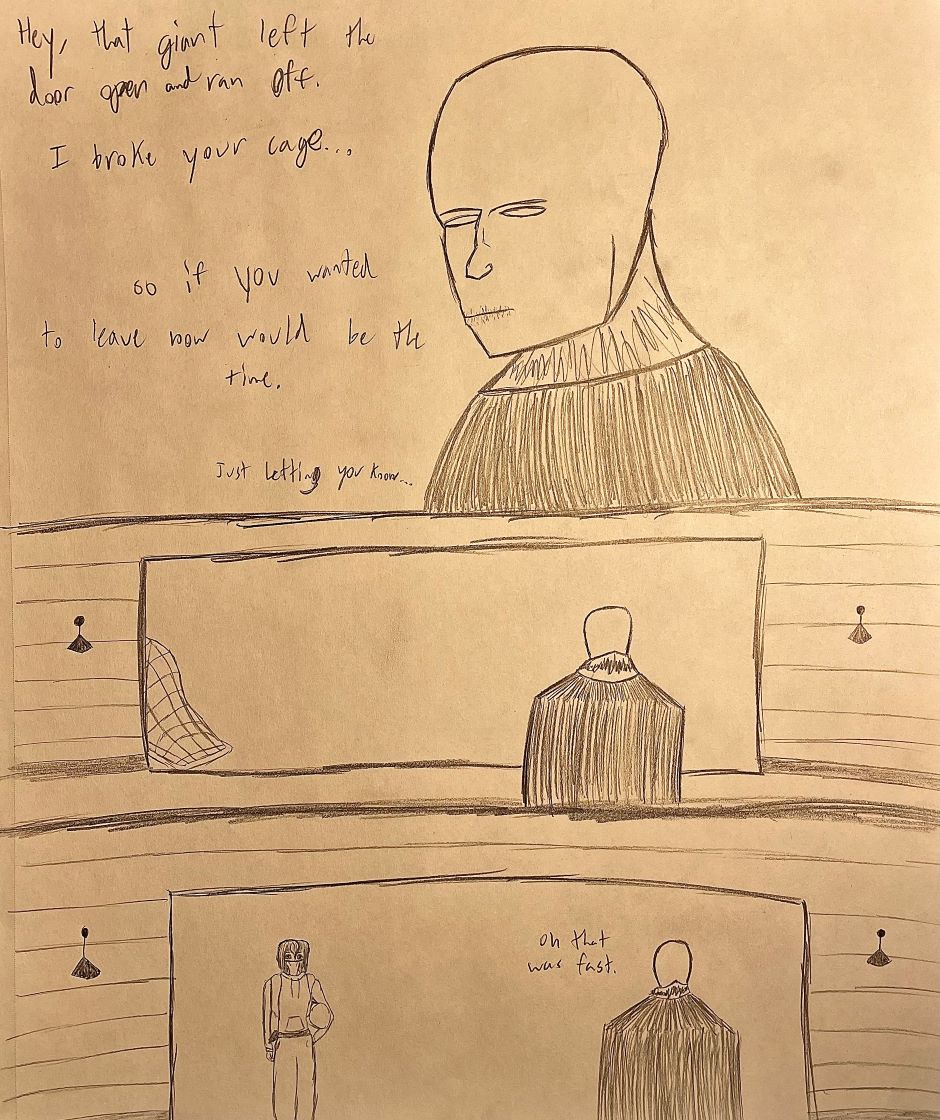 Hey, that giant left the
door open and ran off.
I broke your cage...
so if you wanted
to leave now would be the
time.
Just letting you know...
Oh that
was fast.